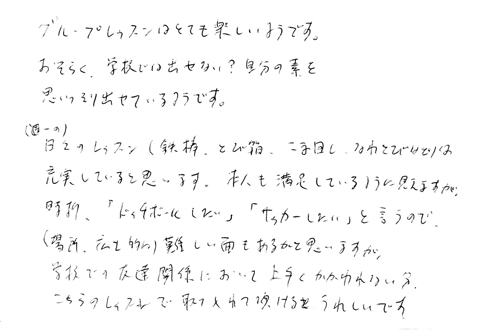 グループレッスンはとても楽しいようです。
おそらく、学校では出せない?自分の素を
思いっきり出せているようです。
(週一の)
日々のレッスン(鉄棒、とび箱、こま回し、なわとびなど)は
充実していると思います。本人も満足しているように見えますが、
時折、「ドッチボールしたい」「サッカーしたい」と言うので、
(場所、広さ的に)難しい面もあるかと思いますが、
学校での友達関係において上手くかかわれない分、
こちらのレッスンで取り入れて頂けるとうれしいです